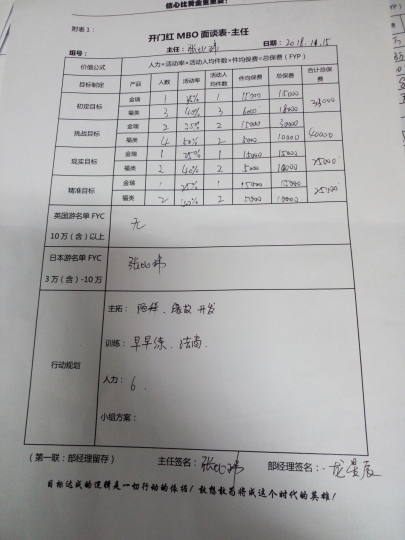 信心比黄金更重要！
附表 1：
开门红 MBO 面谈表-主任
组号： 主任： 日期：2018.11.15
价值公式 人力×活动率×活动人均件数×件均保费=总保费（FYP）
目标制定 产品 人数 活动率 活动人均件数 件均保费 总保费 合计总保费
初定目标 金瑞 1 1 15000 15000 33000
福类 3 40% 3 6000 18000
挑战目标 金瑞 2 25% 2 15000 30000 40000
福类 4 50% 2 5000 10000
现实目标 金瑞 1 25% 1 15000 15000 25000
福类 2 40% 2 5000 10000
精准目标 金瑞 1 25% 1 15000 15000 25000
福类 2 2 5000 10000
英国游名单 FYC
10 万（含）以上
无
日本游名单 FYC
3 万（含）-10 万
行动规划
主拓：陌拜、缘故 开发
训练：早早练、
人力：6.
小组方案：
（第一联：部经理留存） 主任签名： 部经理签名：龙星辰
目标达成的逻辑是一切行动的依据！敢想敢为将成这个时代的英雄！